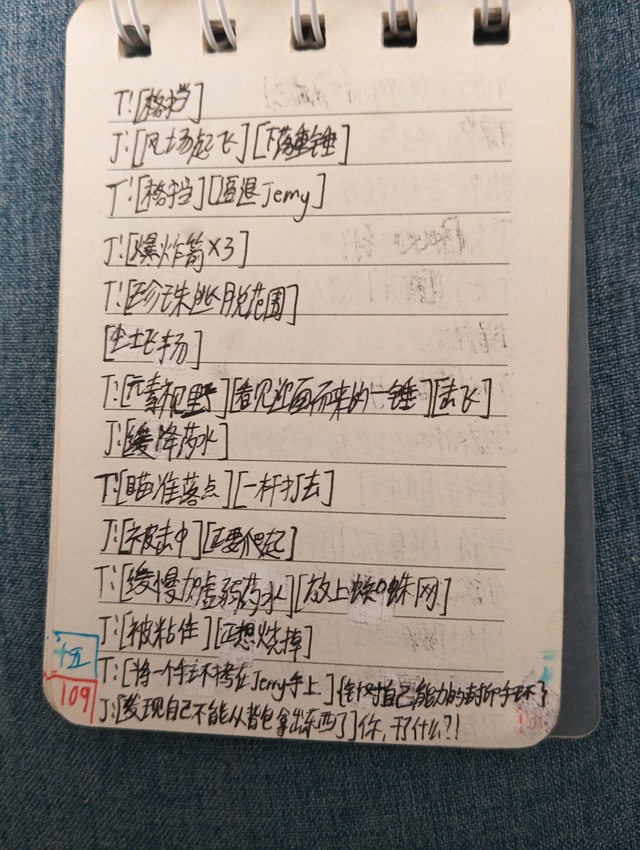 T:[格挡]
J:[风场起飞][下落重锤]
T:[格挡][逼退Jerry]
J:[爆炸箭×3]
T:[珍珠逃脱范围]
[尘土飞扬]
T:[元素视野][看见迎面而来的一锤][击飞]
J:[缓降药水]
T:[瞄准落点][一杆打去]
J:[被击中][正要爬起]
T:[缓慢加虚弱药水][放上蜘蛛网]
J:[被粘住][正想烧掉]
T:[将一个手环拷在Jerry手上]{针对自己能力的封印手环}
J:[发现自己不能从背包拿出东西了]你,干什么?!
十五
109